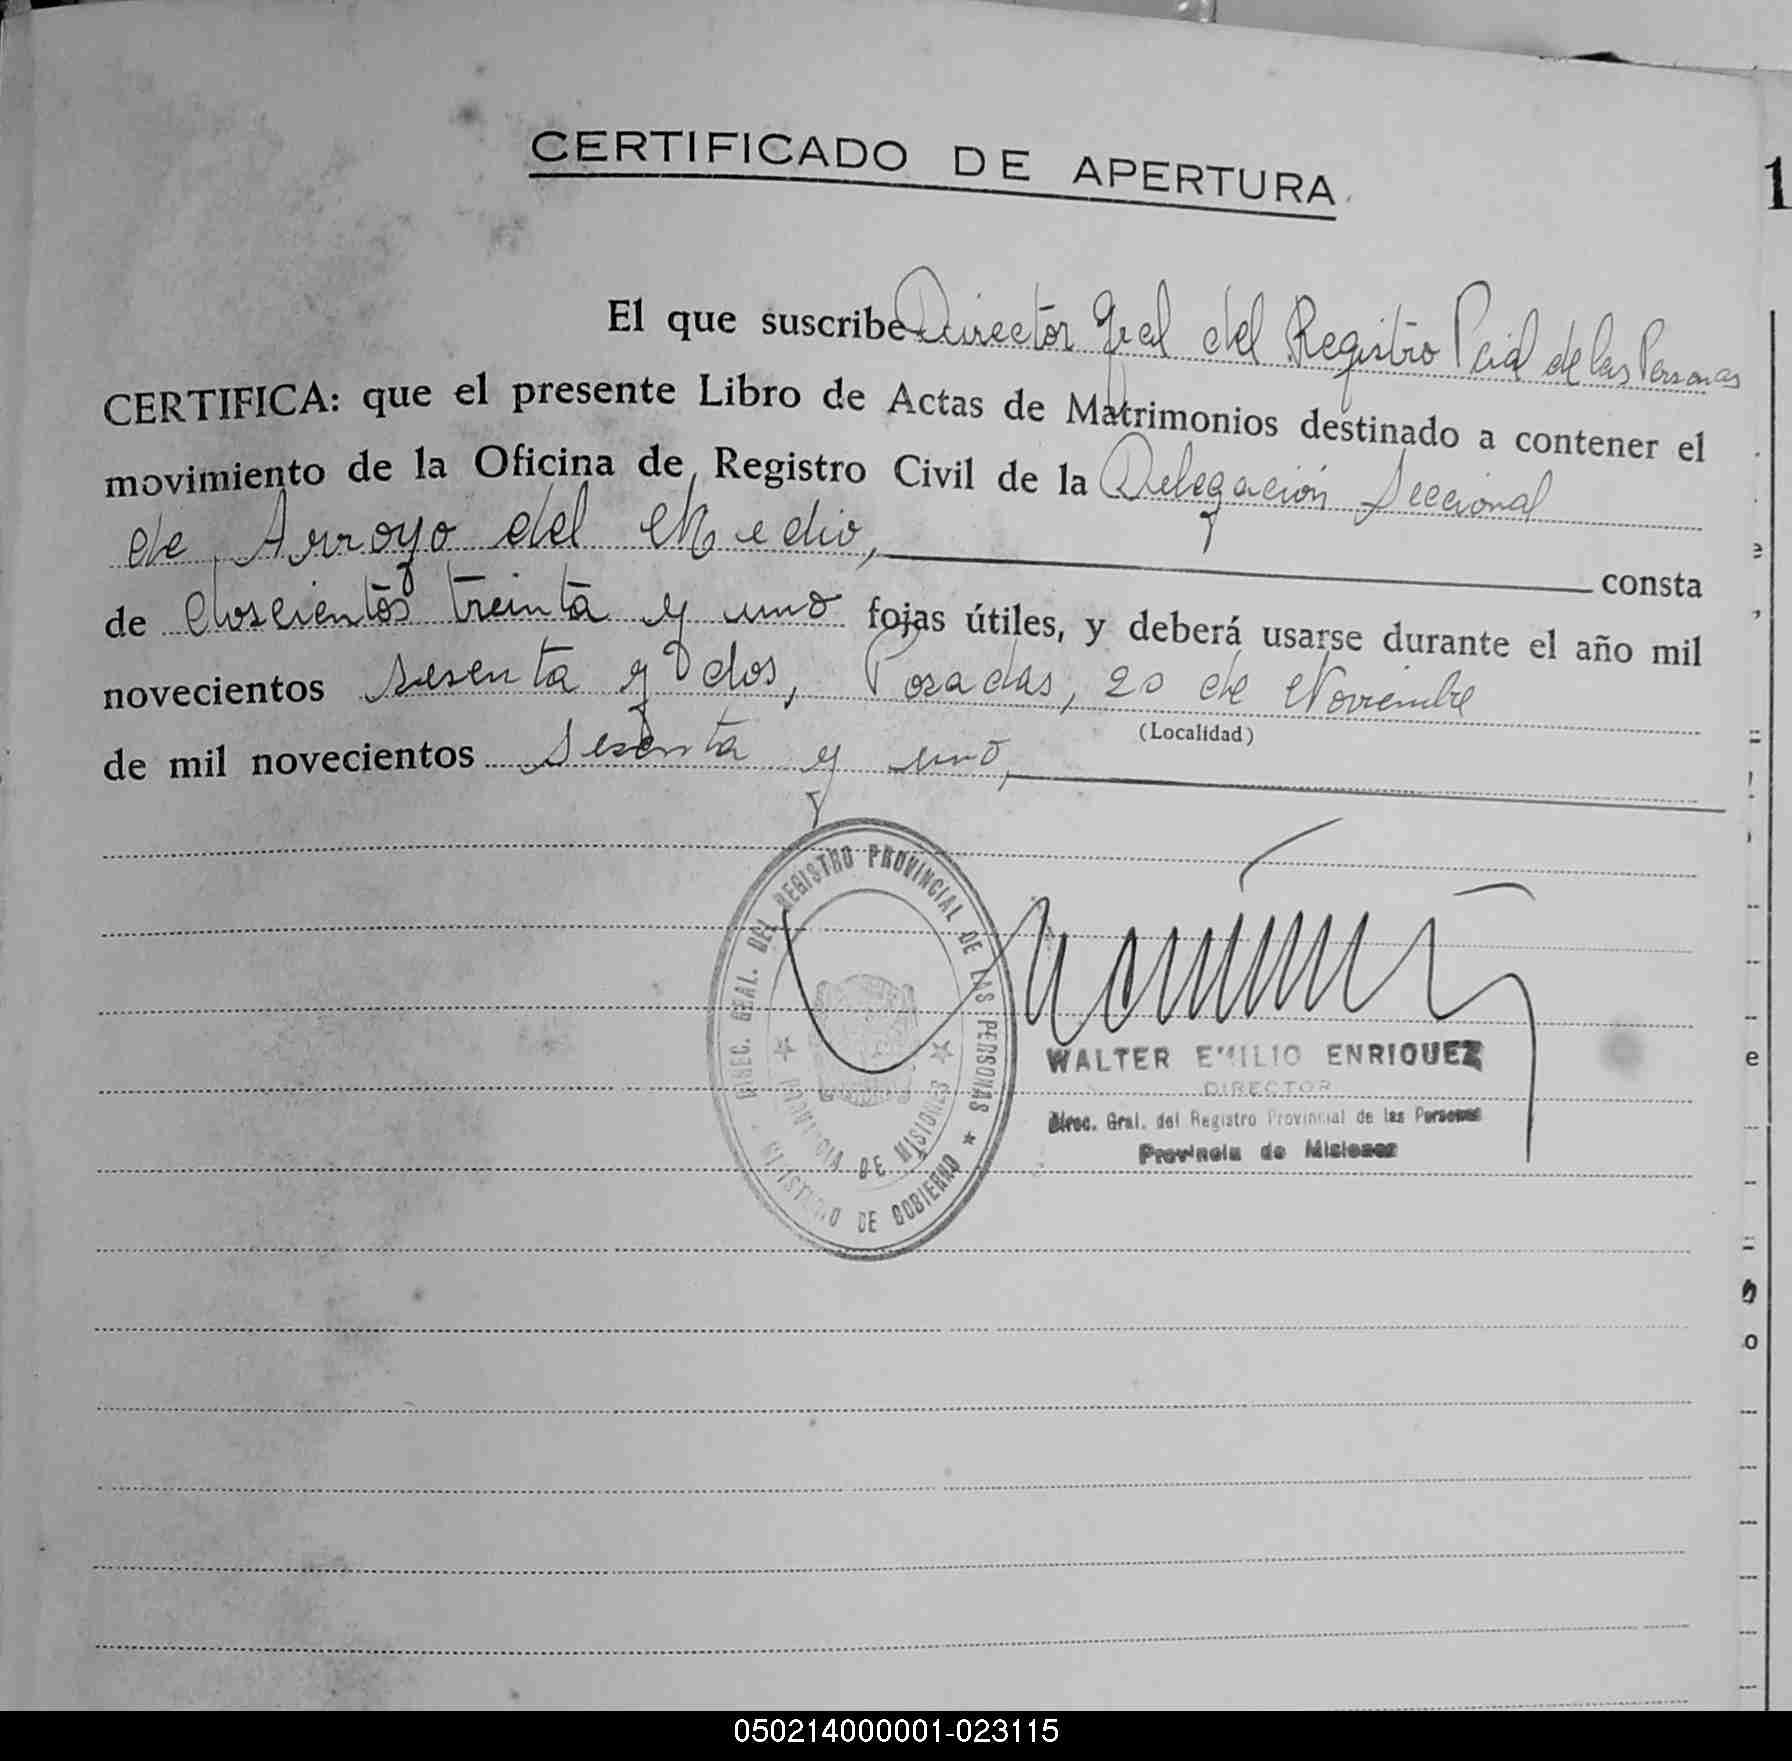 CERTIFICADO DE APERTURA
1
El que suscribe Director Gral del Registro Pcial de las Personas
CERTIFICA: que el presente Libro de Actas de Matrimonios destinado a contener el
movimiento de la Oficina de Registro Civil de la Delegación Seccional
de Arroyo del Medio, consta
de doscientos treinta y uno fojas útiles, y deberá usarse durante el año mil
novecientos sesenta y dos, Posadas, 20 de Noviembre
(Localidad)
de mil novecientos sesenta y uno,
DIREC. GRAL. DEL REGISTRO PROVINCIAL DE LAS PERSONAS
MINISTERIO DE GOBIERNO
PROVINCIA DE MISIONES
WALTER EMILIO ENRIQUEZ
DIRECTOR
Direc. Gral. del Registro Provincial de las Personas
Provincia de Misiones
050214000001-023115